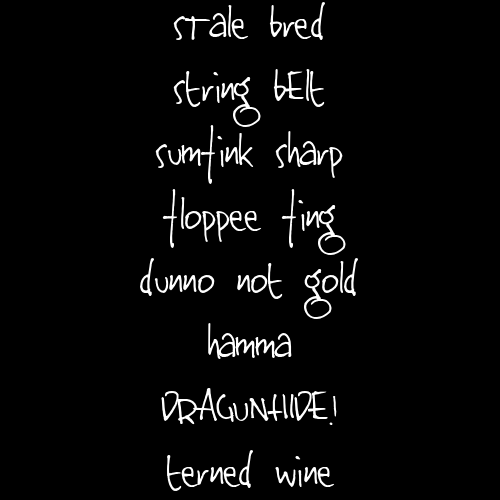 sTale bred
string bElt
sumfink sharp
floppee fing
dunno not gold
hamma
DRAGUNHIDE!
terned wine